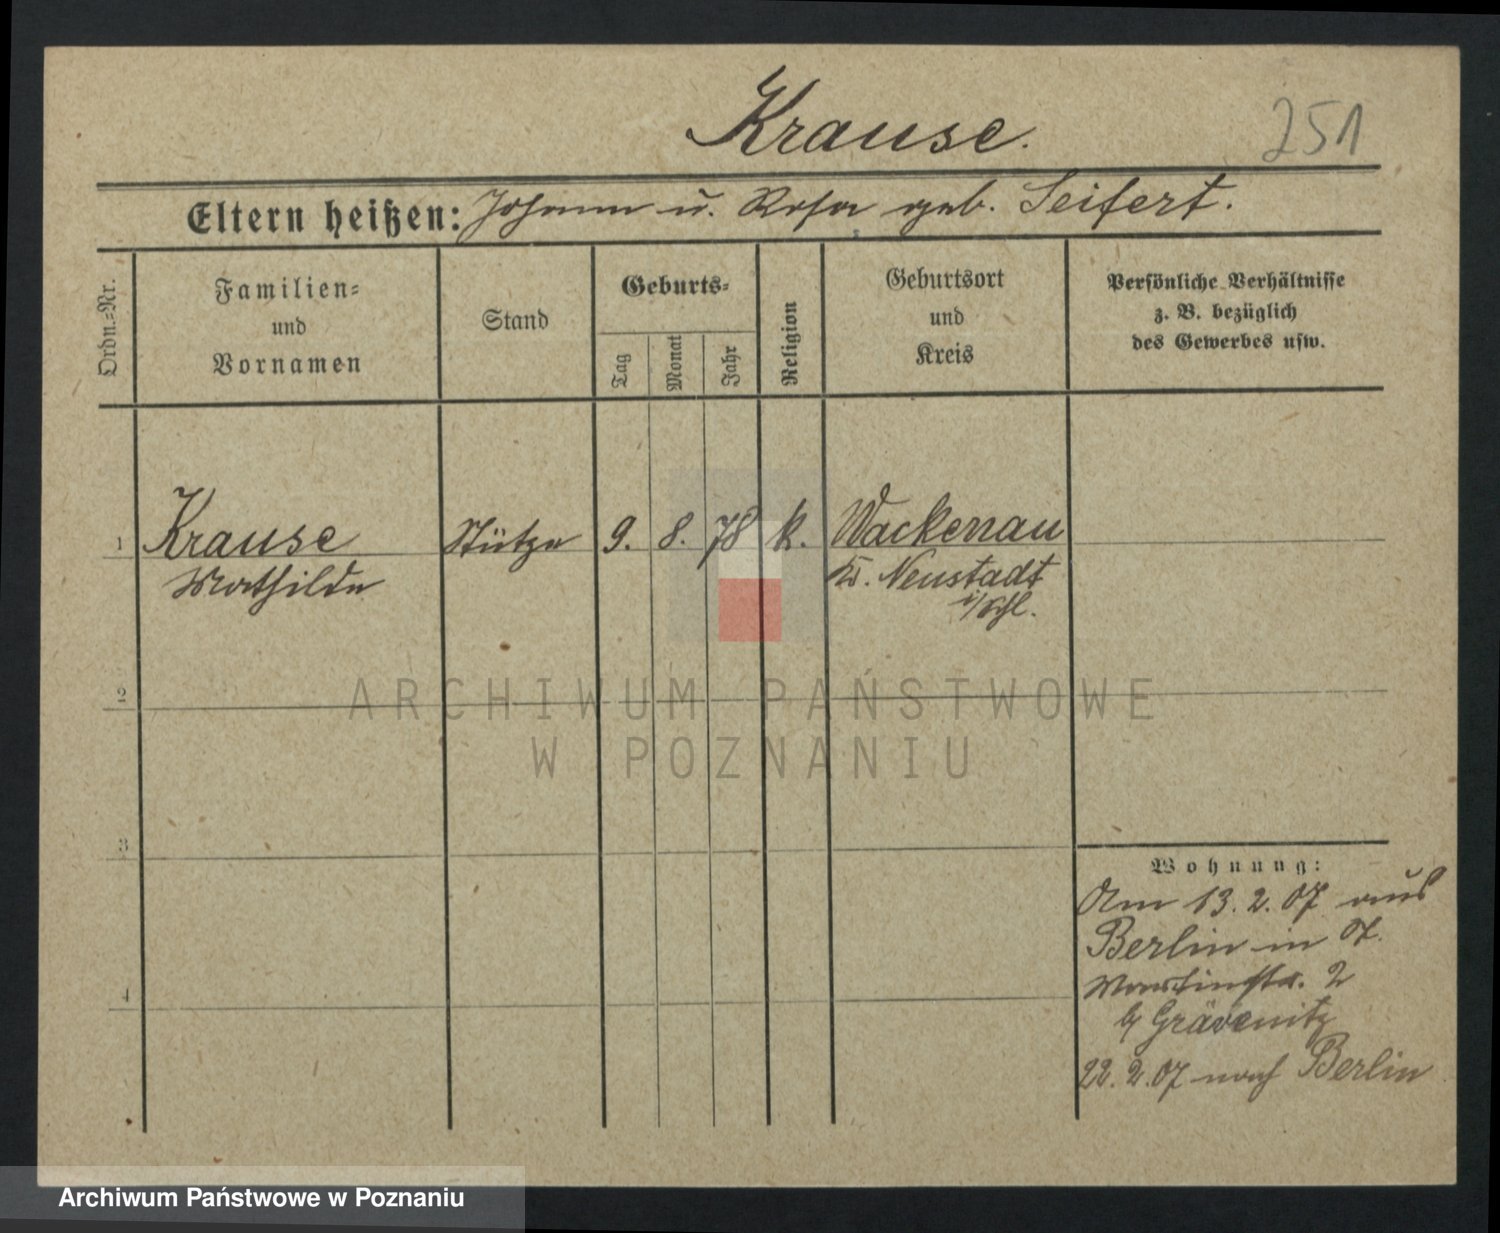 Krause.
251
Eltern heißen: Johann u. Rosa geb. Seifert.
Ordn.-Nr.
Familien-
und
Vornamen
Stand
Geburts-
Tag
Monat
Jahr
Religion
Geburtsort
und
Kreis
Persönliche Verhältnisse
z. B. bezüglich
des Gewerbes usw.
1
Krause
Mathilde
Stütze
9.
8.
78
k.
Wackenau
Kr. Neustadt
i/Schl.
2
3
4
Wohnung:
Am 13.2.07 aus
Berlin in
Martinstr. 2
b/ Grävenitz
22.2.07 nach Berlin
ARCHIWUM PAŃSTWOWE
W POZNANIU
Archiwum Państwowe w Poznaniu